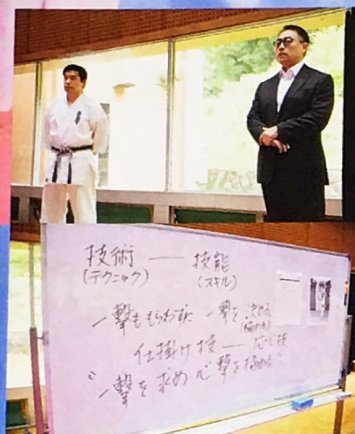 技術 — 技能
(テクニック) (スキル)
一撃ももらわずに 一撃で決める
仕掛け技 — 応じ技
"一撃を求め 一撃を極める"